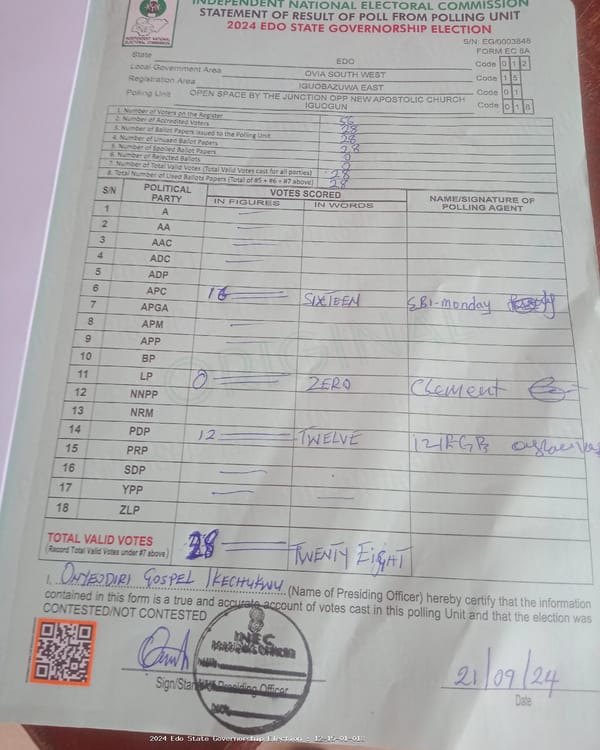 INDEPENDENT NATIONAL ELECTORAL COMMISSION
STATEMENT OF RESULT OF POLL FROM POLLING UNIT
2024 EDO STATE GOVERNORSHIP ELECTION
S/N: EG/0003848
FORM EC 8A
State EDO Code 0 1 2
Local Government Area OVIA SOUTH WEST Code 1 5
Registration Area IGUOBAZUWA EAST Code 0 1
Polling Unit OPEN SPACE BY THE JUNCTION OPP NEW APOSTOLIC CHURCH IGUOGUN Code 0 1 8
1. Number of Voters on the Register 56
2. Number of Accredited Voters 28
3. Number of Ballot Papers Issued to the Polling Unit
4. Number of Unused Ballot Papers 28
5. Number of Spoiled Ballot Papers 0
6. Number of Rejected Ballots 0
7. Number of Total Valid Votes (Total Valid Votes cast for all parties) 28
8. Total Number of Used Ballots Papers (Total of #5 + #6 + #7 above) 28
S/N POLITICAL PARTY VOTES SCORED NAME/SIGNATURE OF POLLING AGENT
IN FIGURES IN WORDS
1 A
2 AA
3 AAC
4 ADC
5 ADP
6 APC 16 SIXTEEN SBI-monday
7 APGA
8 APM
9 APP
10 BP
11 LP 0 ZERO Clement
12 NNPP
13 NRM
14 PDP 12 TWELVE
15 PRP
16 SDP
17 YPP
18 ZLP
ORIGINAL
TOTAL VALID VOTES 28 TWENTY EIGHT
(Record Total Valid Votes under #7 above)
I, ONYEODIRI GOSPEL IKECHUKWU (Name of Presiding Officer) hereby certify that the information
contained in this form is a true and accurate account of votes cast in this polling Unit and that the election was
CONTESTED/NOT CONTESTED
INEC
PRESIDING OFFICER
Sign/Stamp of Presiding Officer
21/09/24
Date
2024 Edo State Governorship Election - 12-15-01-018